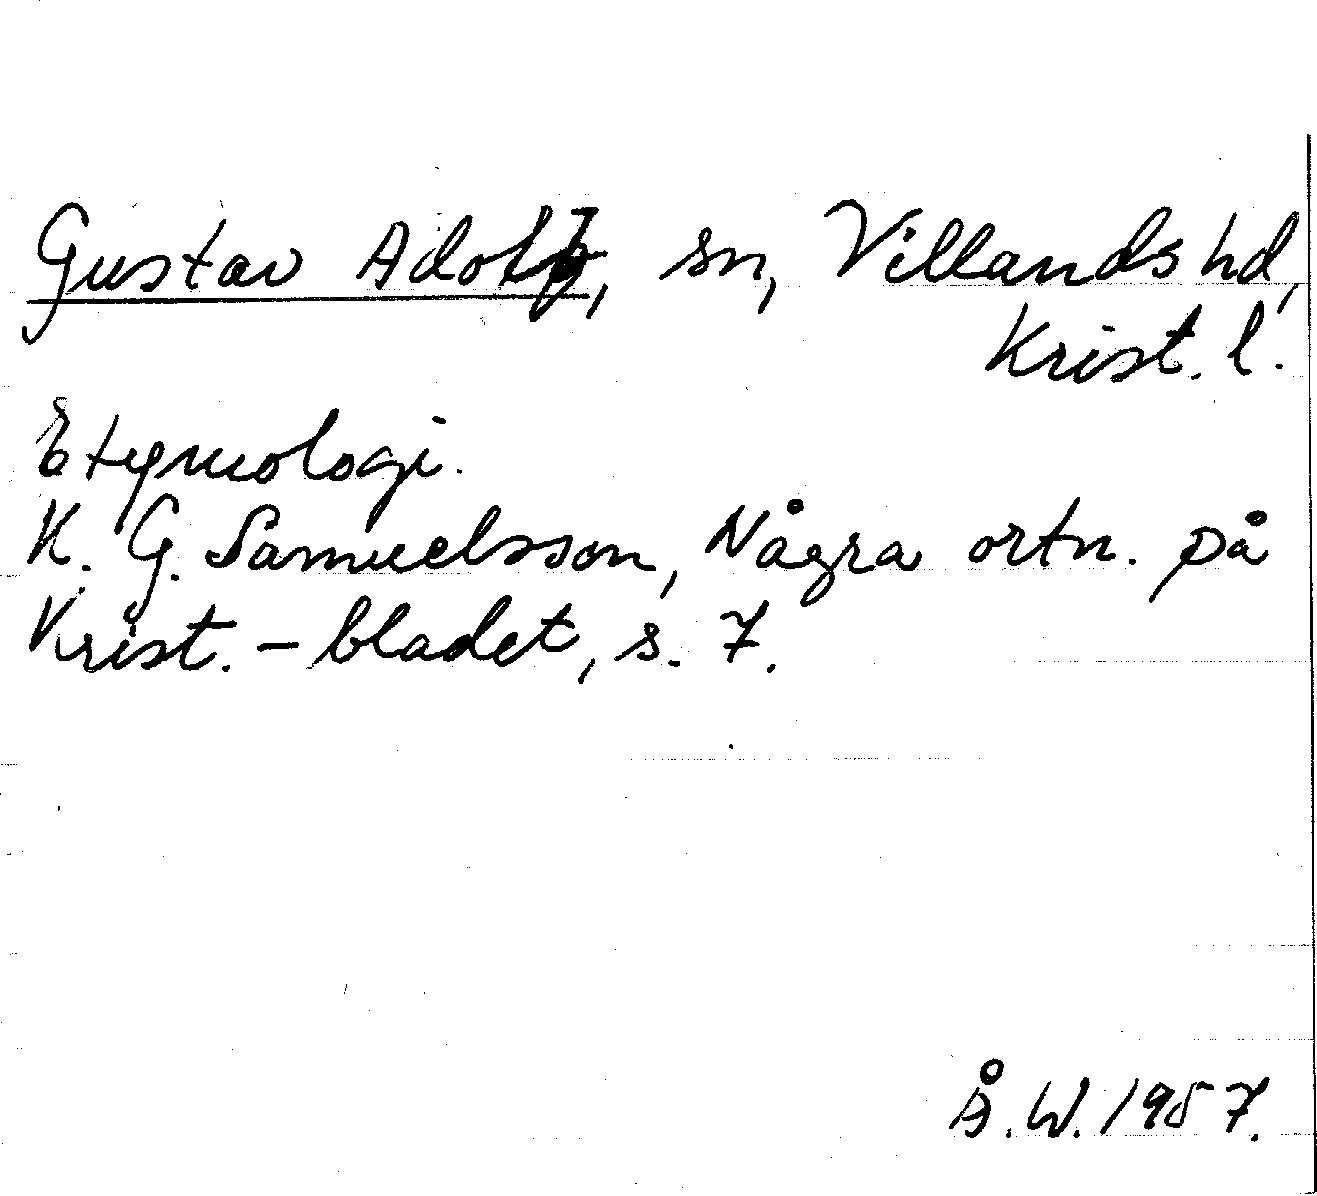 Gustav Adolf, sn, Villands hd,
Krist. l.
Etymologi.
K. G. Samuelsson, Några ortn. på
Krist. - bladet, s. 7.
Å. W. 1957.